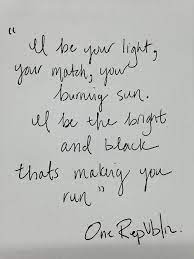 "
I'll be your light,
your match, your
burning sun.
I'll be the bright
and black
thats making you
run"
OneRepublic.